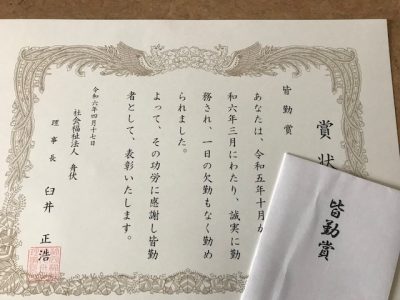 賞状
皆勤賞
あなたは、令和五年十月か
和六年三月にわたり、誠実に勤
務され、一日の欠勤もなく勤め
られました。
よって、その功労に感謝し皆勤
者として、表彰いたします。
令和六年四月十七日
社会福祉法人 舟伏
理事長 臼井 正浩
皆勤賞